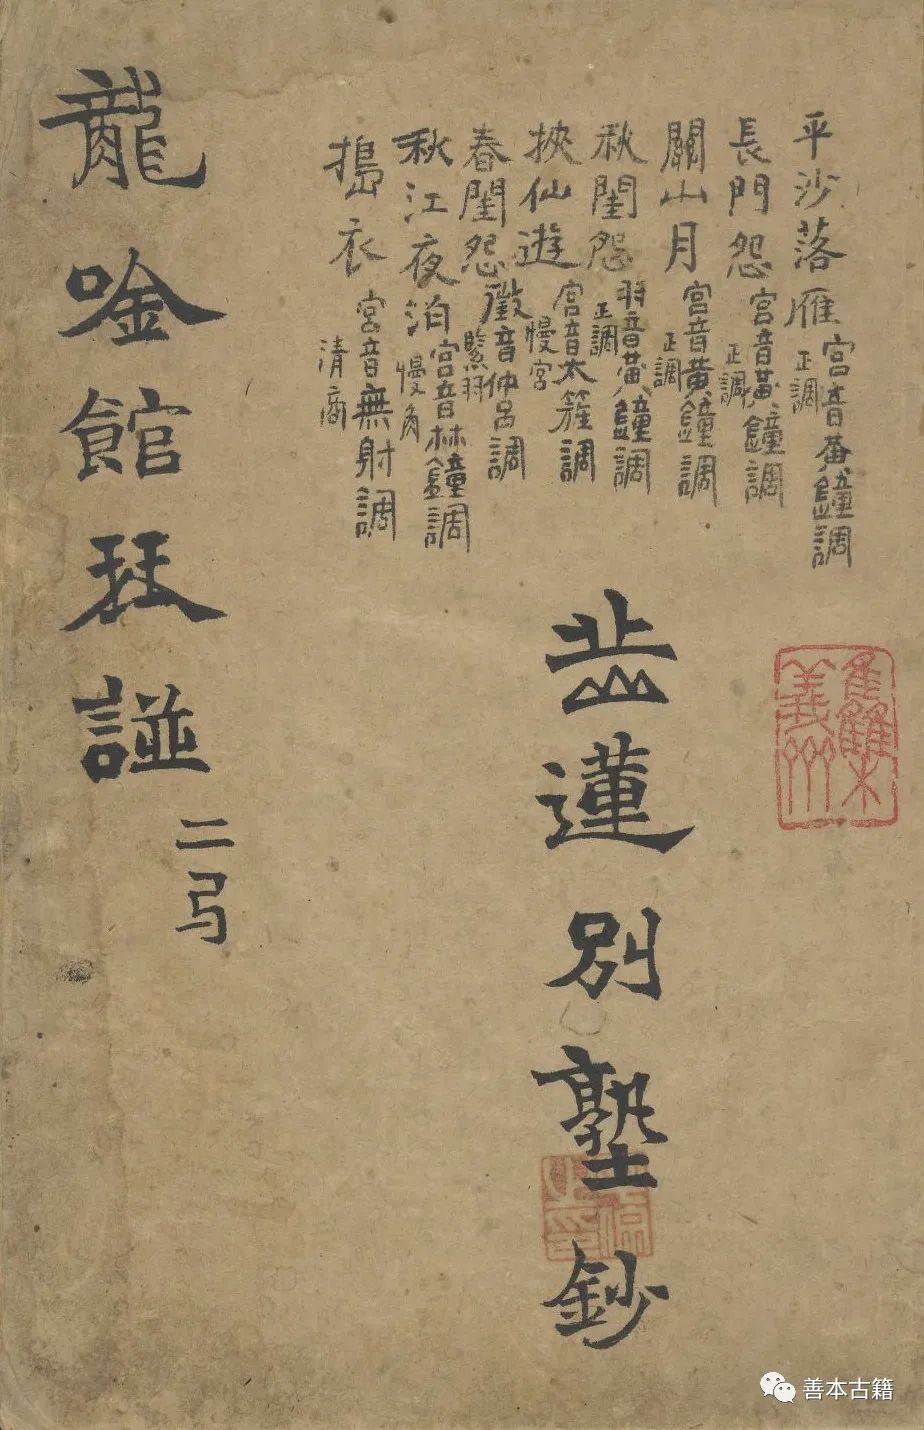 平沙落雁 宮音黃鐘調 正調
長門怨 宮音黃鐘調 正調
關山月 宮音黃鐘調 正調
秋閨怨 羽音黃鐘調 正調
挾仙遊 宮音太簇調 慢宮
春閨怨 徵音仲呂調 緊羽
秋江夜泊 宮音林鐘調 慢角
搗衣 宮音無射調 清商
岳蓮別塾鈔
龍唫館琹譜 二弓
善本古籍